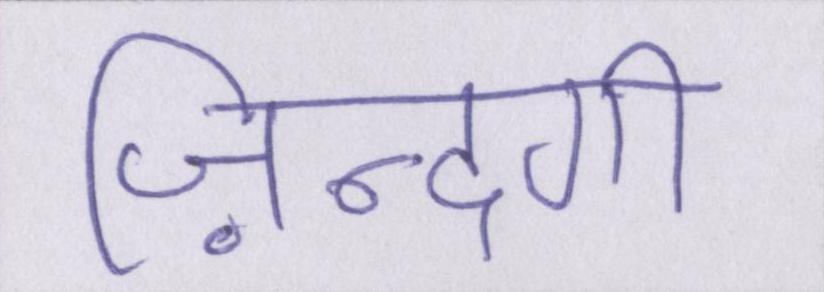 ज़िन्दगी